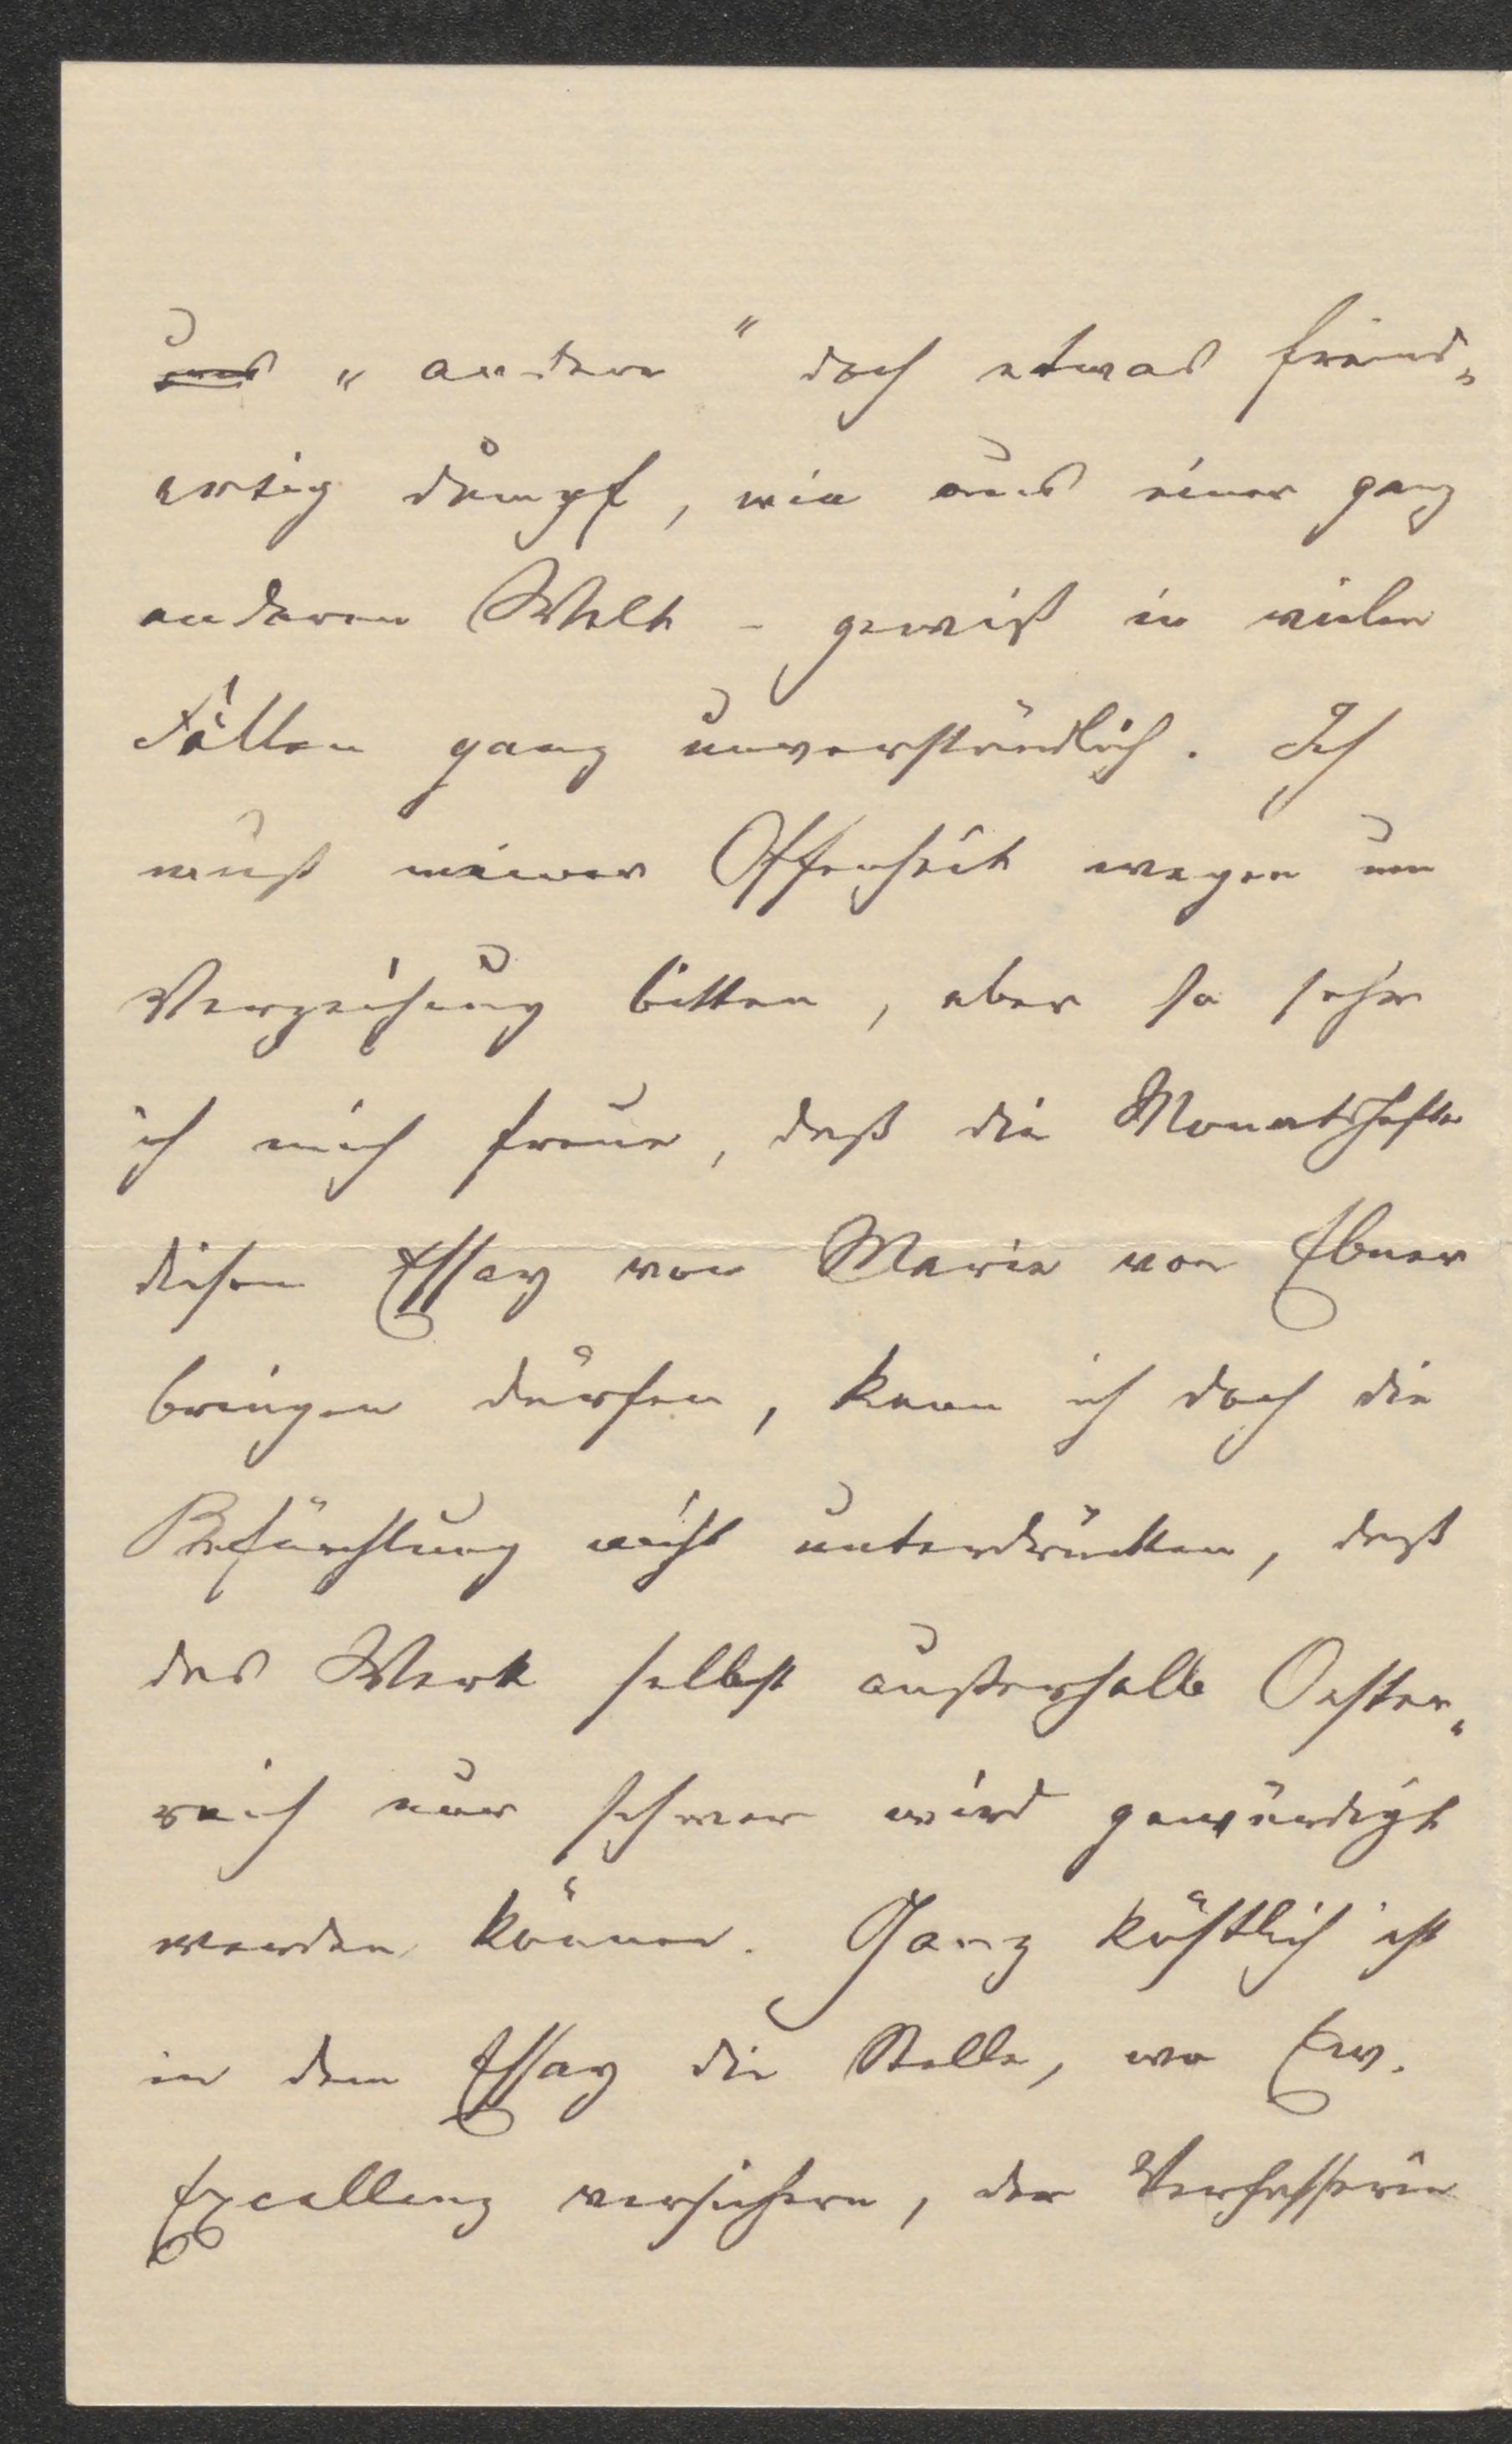 uns „andere" doch etwas fremd-
artig dumpf, wie aus einer ganz
anderen Welt – gewiß in vielen
Fällen ganz unverständlich. Ich
muß meiner Offenheit wegen um
Verzeihung bitten, aber so sehr
ich mich freue, daß die Monatshefte
diesen Essay von Marie von Ebner
bringen dürfen, kann ich doch die
Befürchtung nicht unterdrücken, daß
das Werk selbst außerhalb Oester-
reich nur schwer wird gewürdigt
werden können. Ganz köstlich ist
in dem Essay die Stelle, wo Ew.
Excellenz versichern, der Verfasserin